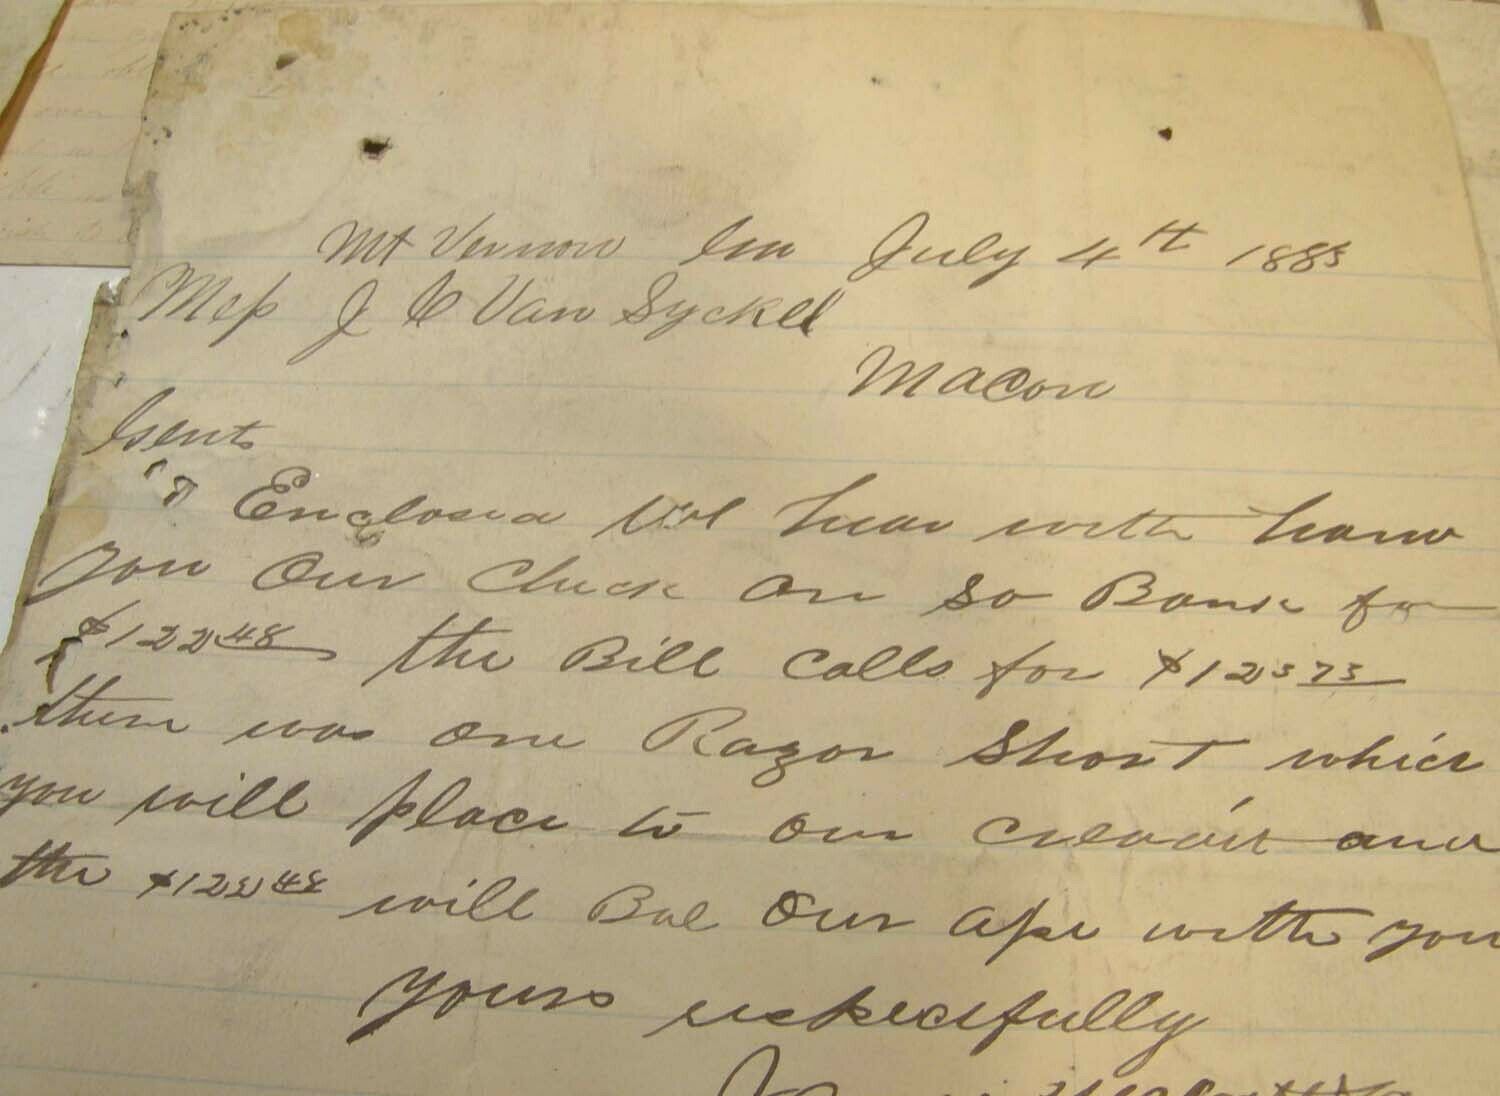 Mt Vernon Ga July 4th 1883
Mess J C Van Syckel
Macon
Gents
Enclosed we hear with hand
you Our Check on so Bank for
$122 48 the Bill Calls for $123 73
there was one Razor Short which
you will place to our credit and
the $122 48 will Bal Our a/c with you
yours respectfully